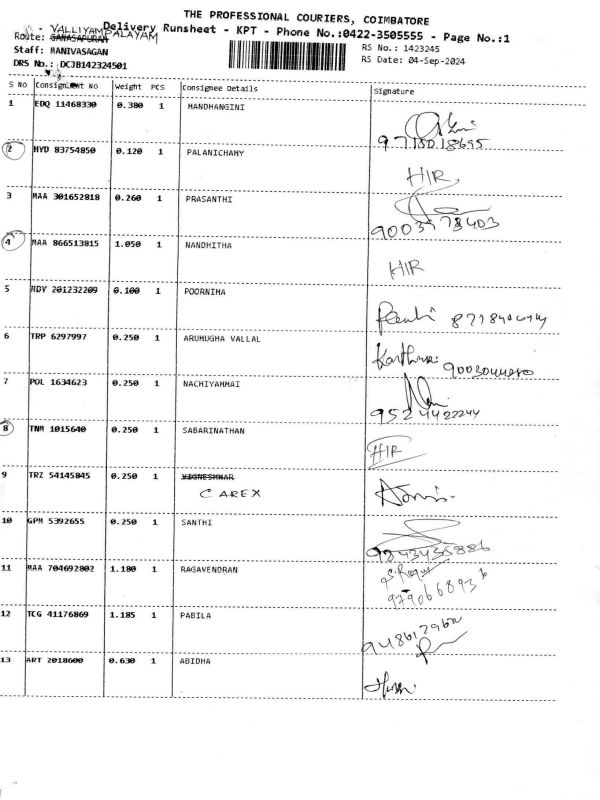 THE PROFESSIONAL COURIERS, COIMBATORE
VALLIYAMPALAYAM
Delivery Runsheet - KPT - Phone No.:0422-3505555 - Page No.:1
Route: GANASAPURAM
Staff: MANIVASAGAN
RS No.: 1423245
DRS No.: DCJB142324501
RS Date: 04-Sep-2024
S NO Consignment No Weight PCS Consignee Details Signature
1 EDQ 11468330 0.380 1 MANDHANGINI
2 HYD 83754850 0.120 1 PALANICHAMY
HIR
3 MAA 301652818 0.260 1 PRASANTHI
4 MAA 866513815 1.050 1 NANDHITHA
HIR
5 NDY 201232209 0.100 1 POORNIMA
6 TRP 6297997 0.250 1 ARUMUGHA VALLAL
7 POL 1634623 0.250 1 NACHIYAMMAI
8 TNM 1015640 0.250 1 SABARINATHAN
HIR
9 TRZ 54145845 0.250 1 VIGNESHWAR
CAREX
10 GPM 5392655 0.250 1 SANTHI
11 MAA 704692802 1.180 1 RAGAVENDRAN
12 TCG 41176869 1.185 1 PABILA
13 ART 2018600 0.630 1 ABIDHA